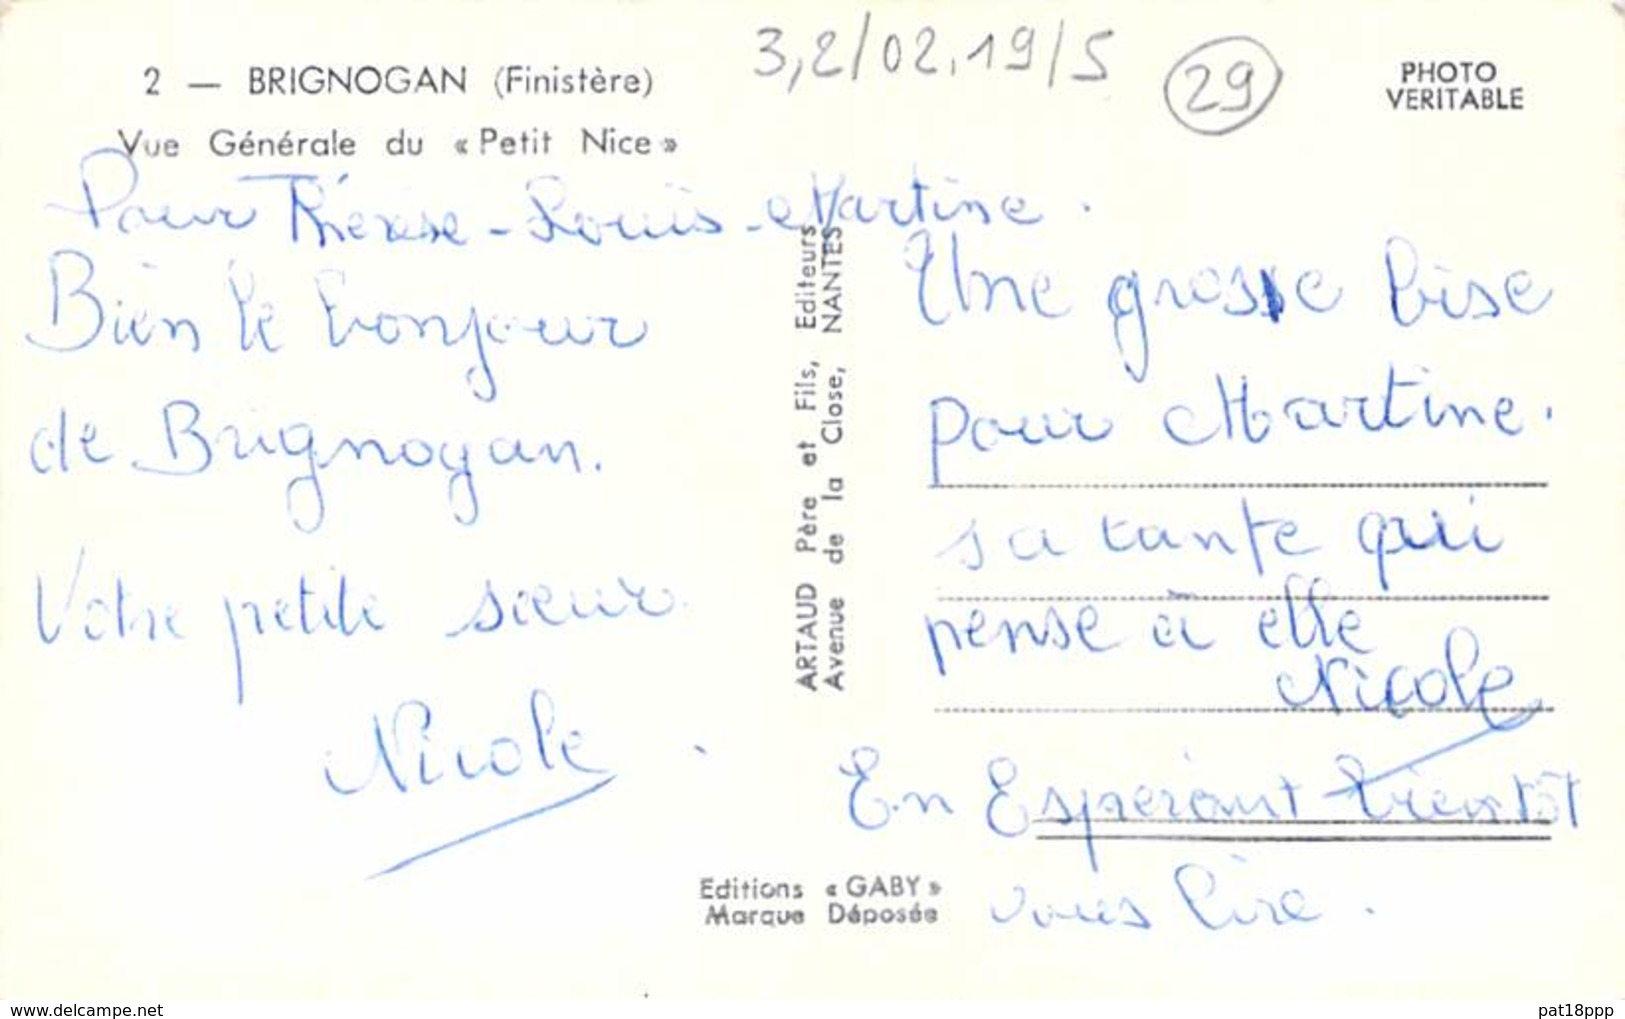 3,2/02.19/5
29
2 — BRIGNOGAN (Finistère)
Vue Générale du « Petit Nice »
PHOTO
VERITABLE
Pour Thérèse - Louis - Martine.
Bien le bonjour
de Brignogan.
Votre petite sœur
Nicole
ARTAUD Père et Fils, Editeurs
Avenue de la Close, NANTES
Une grosse bise
pour Martine.
sa tante qui
pense à elle
Nicole
En Espérant bientôt
vous lire.
Editions « GABY »
Marque Déposée
delcampe.net
pat18ppp